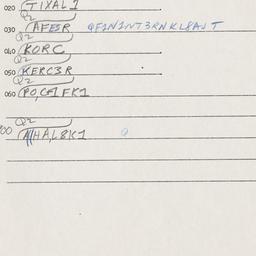 020 TIXAL1
Q2
030 AFE5R QF1N1NT3RNKL8AJT
Q2
040 KORC
Q2
050 KERC3R
Q2
060 PO,CA1FK1
Q2
00 MHAL8K1